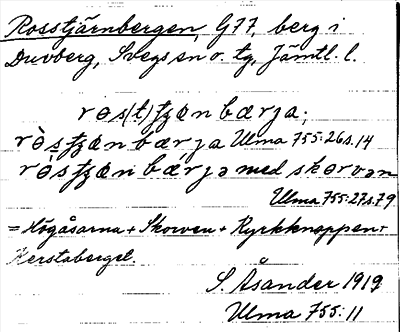 Rosstjärnbergen, G77, berg i
Duvberg, Svegs sn o. tg, Jämtl. l.
rɵs(t)ʄænbærja;
rɵ̀sʄænbærja Ulma 755:26 s. 14
rɵ́sʄænbærjə med skɵrvən
Ulma 755:27 s. 79
= Högåsarna + Skorven + Ryrkknoppen +
Kerstaberget.
S. Åsander 1919
Ulma 755:11